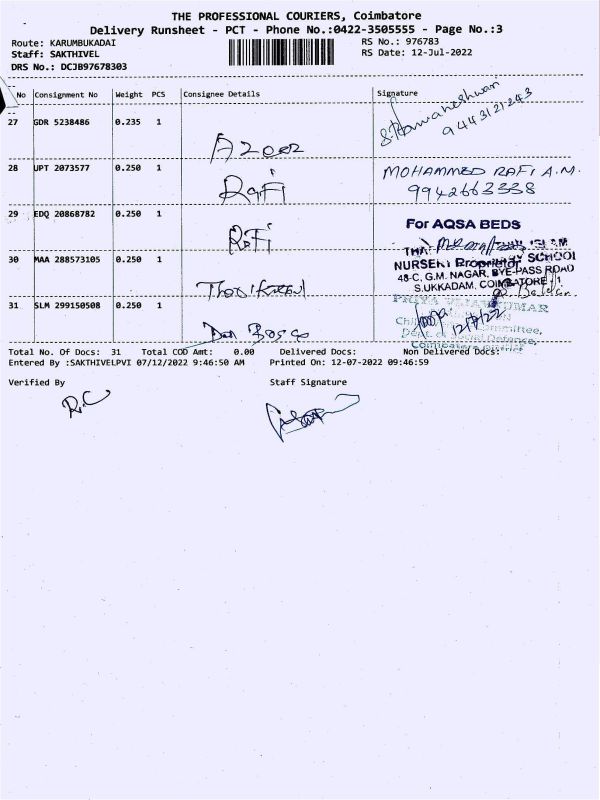 THE PROFESSIONAL COURIERS, Coimbatore
Delivery Runsheet - PCT - Phone No.:0422-3505555 - Page No.:3
Route: KARUMBUKADAI
RS No.: 976783
Staff: SAKTHIVEL
RS Date: 12-Jul-2022
DRS No.: DCJB97678303
No Consignment No Weight PCS Consignee Details Signature
27 GDR 5238486 0.235 1
9443121243
28 UPT 2073577 0.250 1 Rafi MOHAMMED RAFI A.M.
9942663338
29 EDQ 20868782 0.250 1 Rafi For AQSA BEDS
Proprietor
30 MAA 288573105 0.250 1
NURSERY SCHOOL
48-C, G.M. NAGAR, BYE-PASS ROAD
S.UKKADAM, COIMBATORE
31 SLM 299150508 0.250 1 Don Bosco
12/7/22
Committee,
Dept. of Social Defence,
Coimbatore District
Total No. Of Docs: 31 Total COD Amt: 0.00 Delivered Docs: Non Delivered Docs:
Entered By :SAKTHIVELPVI 07/12/2022 9:46:50 AM Printed On: 12-07-2022 09:46:59
Verified By Staff Signature
R.C